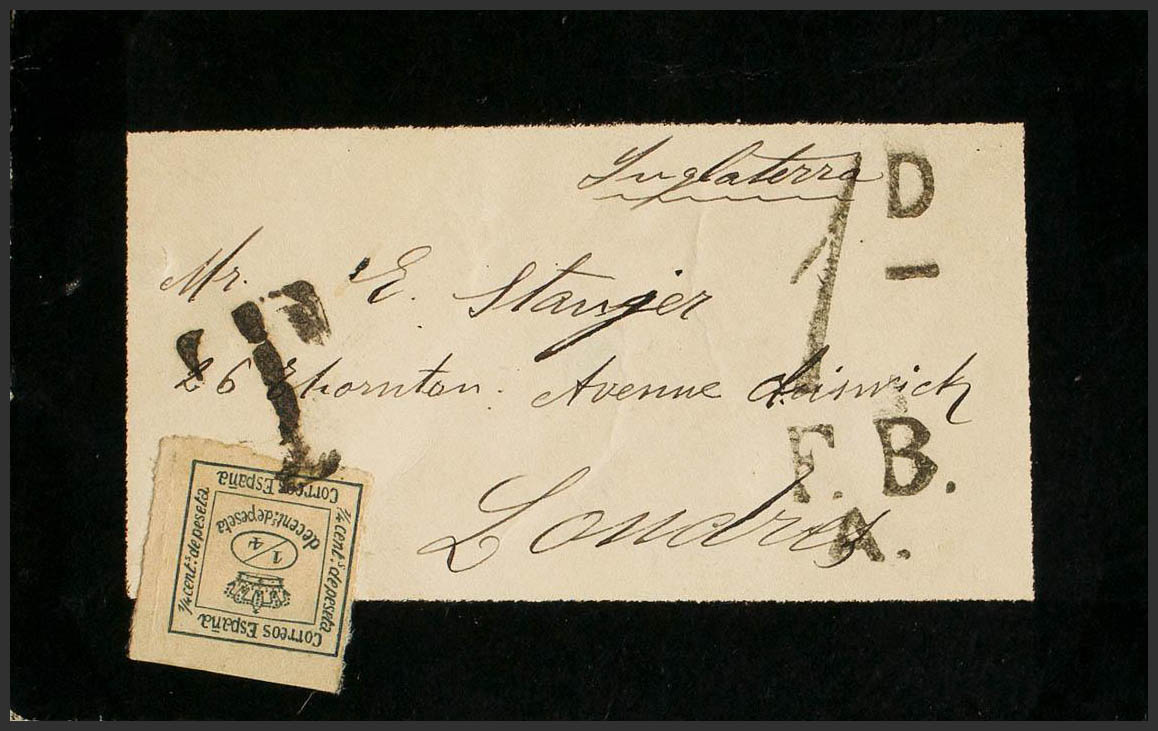 Inglaterra
1 D
Mr. E. Stanger
26 Thornton. Avenue Chiswick
Londres
T
F. B.
A.
Correos España
¼ cent.s de peseta
¼ cent.s de peseta
de cent.s de peseta
1/4
Correos España